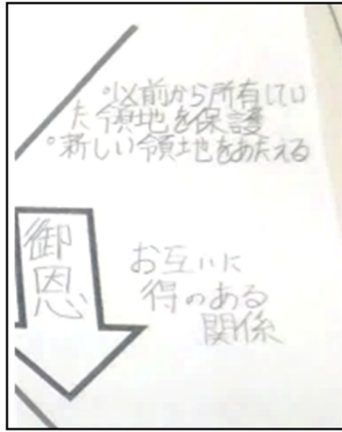 ・以前から所有してい
た領地を保護
・新しい領地をあたえる
御
恩
お互いに
得のある
関係